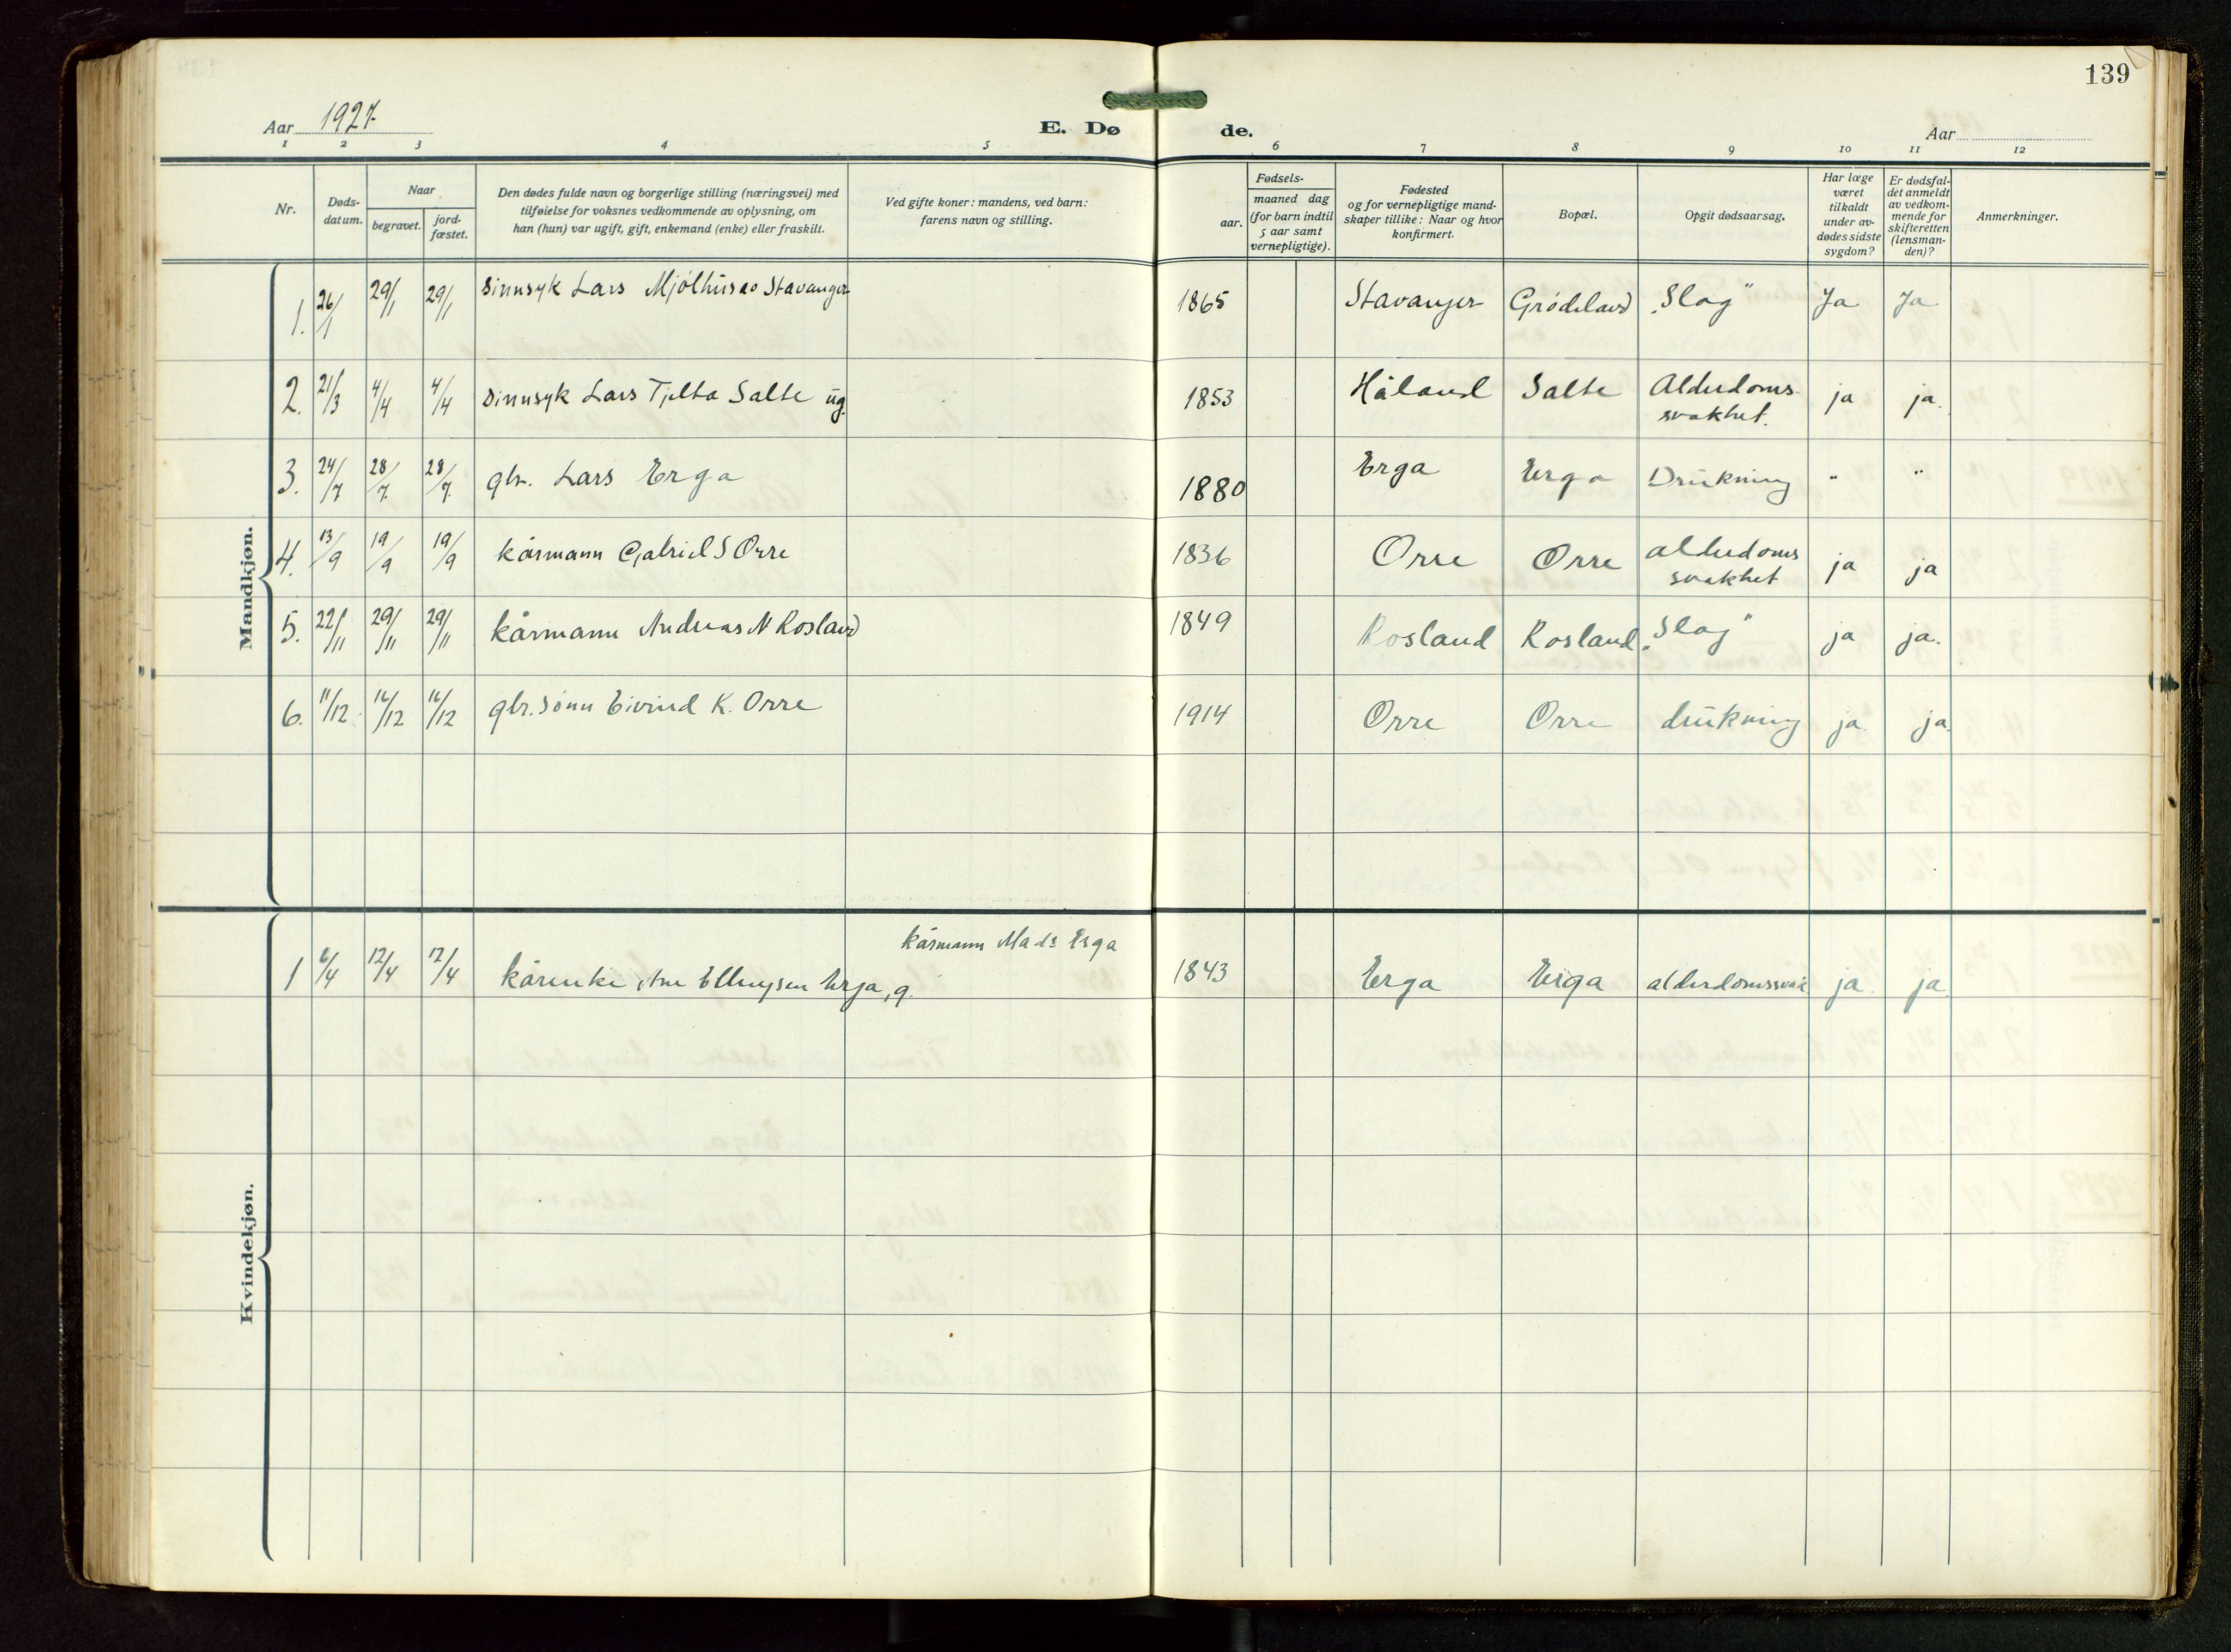 139
Aar 1927
E. Dø de.
Aar
1 2 3 4 5 6 7 8 9 10 11 12
Nr.
Døds-
datum.
Naar
begravet.
jord-
fæstet.
Den dødes fulde navn og borgerlige stilling (næringsvei) med
tilføielse for voksnes vedkommende av oplysning, om
han (hun) var ugift, gift, enkemand (enke) eller fraskilt.
Ved gifte koner: mandens, ved barn:
farens navn og stilling.
Fødsels-
aar.
maaned dag
(for barn indtil
5 aar samt
vernepligtige).
Fødested
og for vernepligtige mand-
skaper tillike: Naar og hvor
konfirmert.
Bopæl.
Opgit dødsaarsag.
Har læge
været
tilkaldt
under av-
dødes sidste
sygdom?
Er dødsfal-
det anmeldt
av vedkom-
mende for
skifteretten
(lensman-
den)?
Anmerkninger.
Mandkjøn.
1. 26/1 29/1 29/1 Sinnsyk Lars Stavanger 1865 Stavanger Grødeland „Slag" Ja Ja
2. 21/3 4/4 4/4 Sinnsyk Lars Tjelta Salte ug. 1853 Håland Salte Alderdoms
svakhet. ja ja.
3. 24/7 28/7 28/7 gbr. Lars Erga 1880 Erga Erga Drukning " "
4. 13/9 19/9 19/9 kårmann Gabriel S Orre 1836 Orre Orre alderdoms
svakhet ja ja
5. 22/11 29/11 29/11 kårmann Andreas N Rosland 1849 Rosland Rosland „Slag" ja ja.
6. 11/12 16/12 16/12 gbr. sønn Eivind K. Orre 1914 Orre Orre drukning ja. ja.
Kvindekjøn.
kårmann Mads Erga
1 6/4 12/4 12/4 kårenke Ane Ellingsen Erga, g. 1843 Erga Erga alderdomssvak. ja. ja.